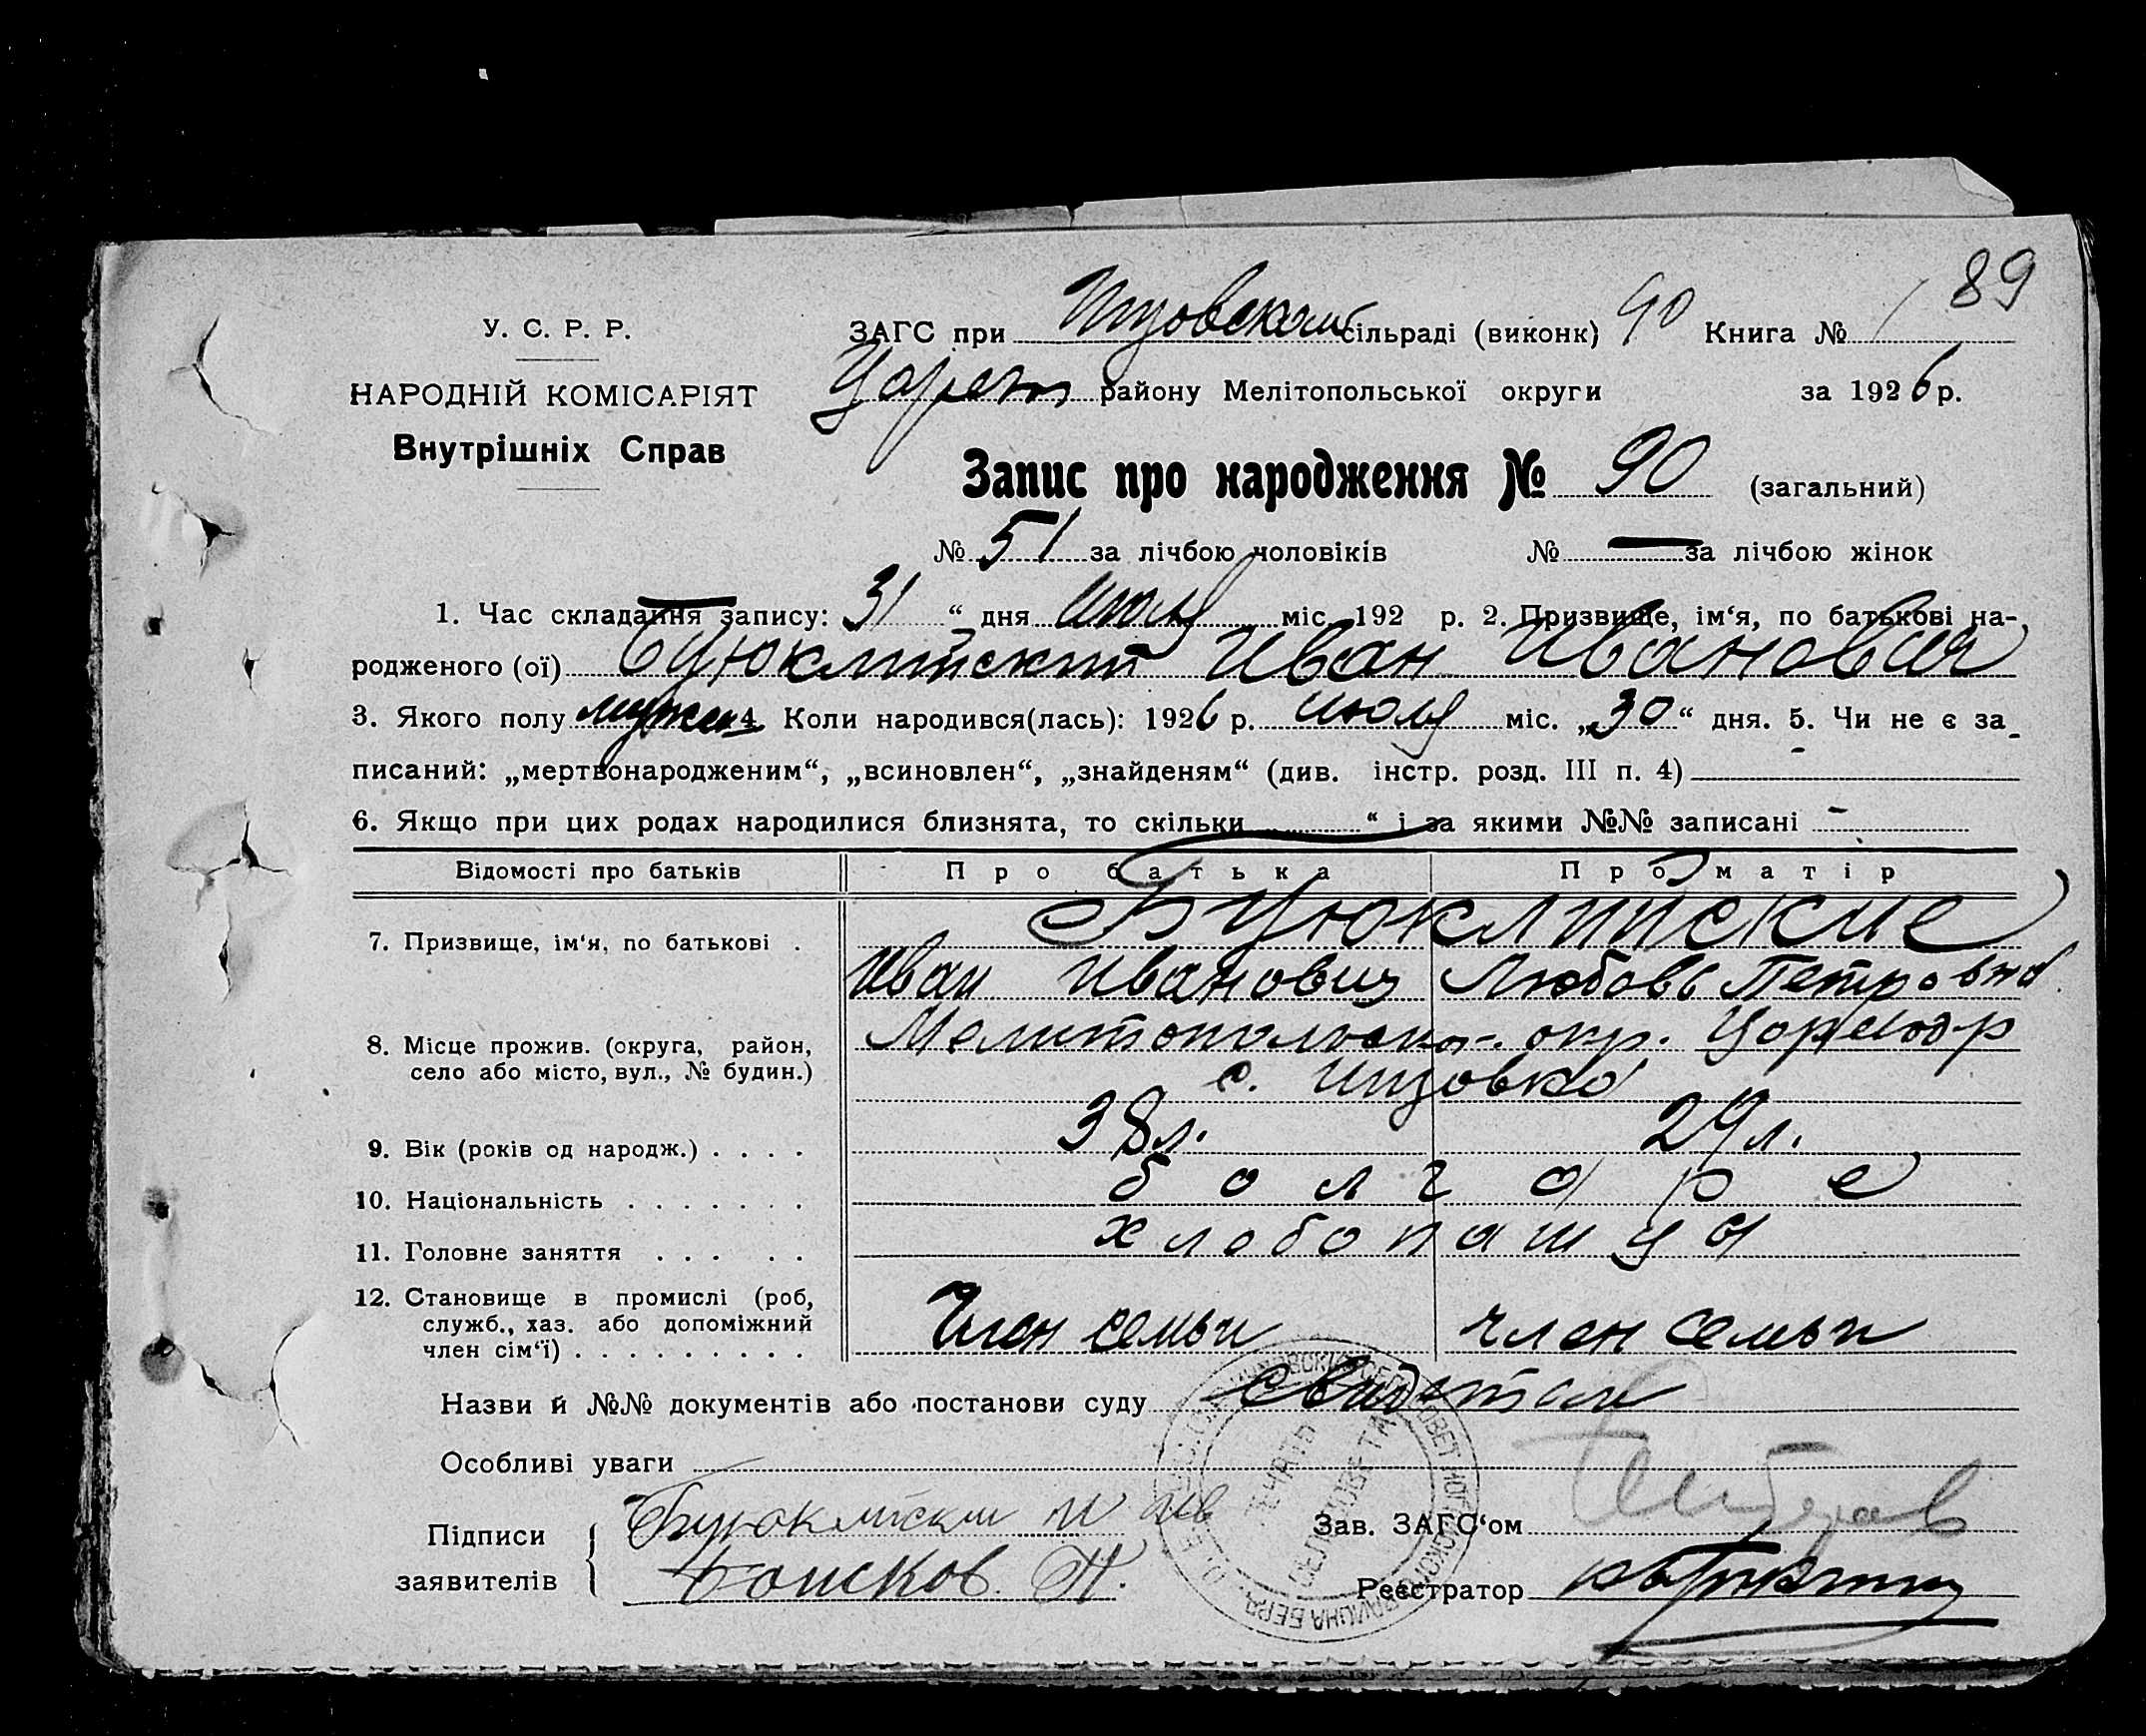 89
У. С. Р. Р.
ЗАГС при Инзовском сільраді (виконк) 90 Книга № 1
НАРОДНІЙ КОМІСАРІЯТ
Царев району Мелітопольської округи за 1926 р.
Внутрішніх Справ
Запис про народження № 90 (загальний)
№ 51 за лічбою чоловіків № — за лічбою жінок
1. Час складання запису: 31 “ дня июля міс. 192 р. 2. Призвище, ім‘я, по батькові на-
родженого (ої) Буюклийский Иван Иванович
3. Якого полу мужск 4. Коли народився(лась): 1926 р. июля міс. „30“ дня. 5. Чи не є за
писаний: „мертвонародженим“, „всиновлен“, „знайденям“ (див. інстр. розд. III п. 4) -
6. Якщо при цих родах народилися близнята, то скільки “ і за якими №№ записані -
Відомості про батьків Про батька Про матір
7. Призвище, ім‘я, по батькові . Буюклийские
Иван Иванович Любовь Петровна
8. Місце прожив. (округа, район, Мелитопольск. окр. Царев р
село або місто, вул., № будин.) с. Инзовка
9. Вік (років од народж.) . . . . 38 л. 29 л.
10. Національність . . . . . . . болгаре
11. Головне заняття . . . . . хлебопашца
12. Становище в промислі (роб,
служб., хаз. або допоміжний
член сім‘ї) . . . . . . . . . Член семьи член семьи
Назви й №№ документів або постанови суду свидетели
Особливі уваги
Підписи Буюклийский И Ив
заявителів Боисков П.
Зав. ЗАГС‘ом
Реєстратор
ПЕЧАТЬ
СЕЛЬСОВЕТА